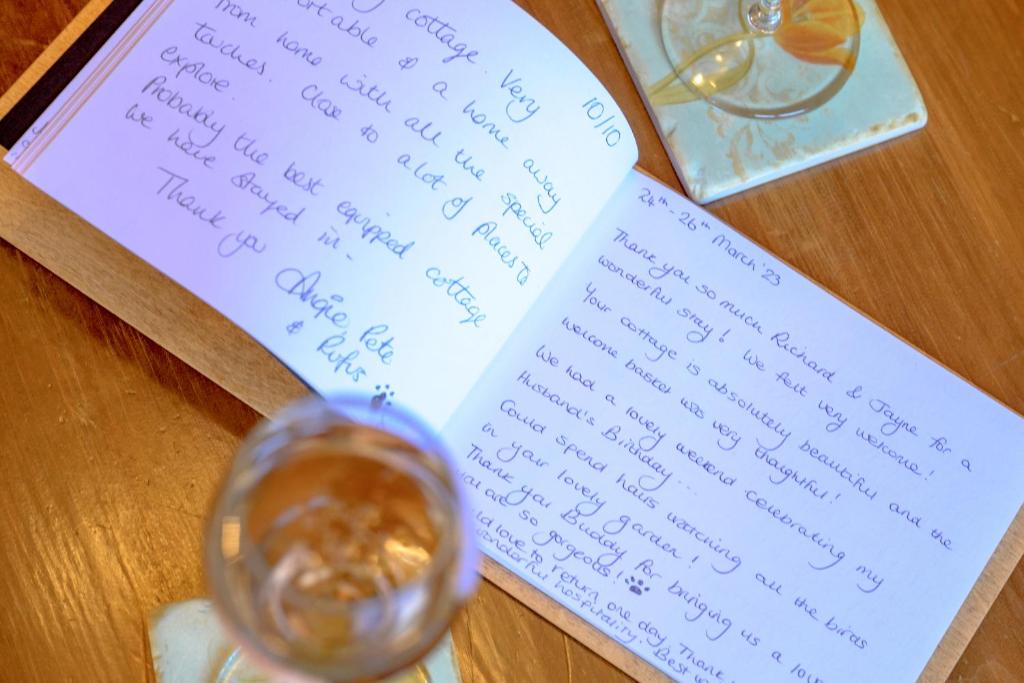 cottage. Very
& a home away
from home with all the special
touches. Close to a lot of places to
explore.
Probably the best equipped cottage
we have stayed in.
Thank you
Angie, Pete
& Rufus
10/10
24th - 26th March '23
Thank you so much Richard & Jayne for a
wonderful stay! We felt very welcome!
Your cottage is absolutely beautiful and the
welcome basket was very thoughtful!
We had a lovely weekend celebrating my
Husband's Birthday...
Could spend hours watching all the birds
in your lovely garden!
Thank you Buddy for bringing us a
you are so gorgeous!
love to return one day. Thank
wonderful hospitality. Best